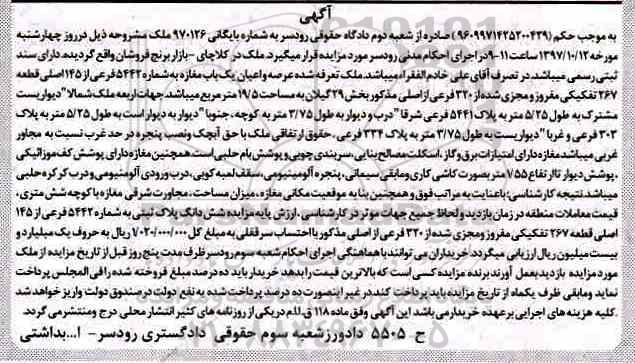 آگهی
به موجب حکم (۹۶۰۹۹۷۱۴۲۵۲۰۰۴۳۹) صادره از شعبه دوم دادگاه حقوقی رودسر به شماره بایگانی ۹۷۰۱۲۶ ملک مشروحه ذیل در روز چهارشنبه
مورخه ۱۳۹۷/۱۰/۱۲ ساعت ۱۱-۹ در اجرای احکام مدنی رودسر مورد مزایده قرار میگیرد. ملک در کلاچای - بازار برنج فروشان واقع گردیده. دارای سند
ثبتی رسمی میباشد. در تصرف آقای علی خادم الفقراء میباشد. ملک تعرفه شده عرصه و اعیان یک باب مغازه به شماره ۵۴۴۲ فرعی از ۱۴۵ اصلی قطعه
۲۶۷ تفکیکی مفروز و مجزی شده از ۳۲۰ فرعی از اصلی مذکور بخش ۲۹ گیلان به مساحت ۱۹/۵ متر مربع میباشد. جهات اربعه ملک شمالا "دیواریست
مشترک به طول ۵/۲۵ متر به پلاک ۵۴۴۱ فرعی شرقا "درب و دیوار به طول ۳/۷۵ متر به کوچه، جنوبا "دیوار به دیوار است به طول ۵/۲۵ متر به پلاک
۳۰۳ فرعی و غربا "دیواریست به طول ۳/۷۵ متر به پلاک ۳۳۴ فرعی، حقوق ارتفاقی ملک با حق آبچک ونصب پنجره در حد غرب نسبت به مجاور
غربی میباشد مغازه دارای امتیازات برق و گاز، اسکلت مصالح بنایی، سربندی چوبی و پوشش بام حلبی است همچنین مغازه دارای پوشش کف موزائیکی
، پوشش دیوار تا ارتفاع ۱/۵۵ متر بصورت کاشی کاری ومابقی سیمانی، پنجره آلومینیومی، سقف لمبه کوبی، درب ورودی آلومنیومی و درب کرکره حلبی
میباشد. نتیجه کارشناسی: باعنایت به مراتب فوق و همچنین بنا به موقعیت مکانی مغازه، میزان مساحت، مجاورت شرقی مغازه با کوچه شش متری،
قیمت معاملات منطقه در زمان بازدید و لحاظ جمیع جهات موثر در کارشناسی، ارزش پایه مزایده شش دانگ پلاک ثبتی به شماره ۵۴۴۲ فرعی از ۱۴۵
اصلی قطعه ۲۶۷ تفکیکی مفروز ومجزی شده از ۳۲۰ فرعی از اصلی مذکور با احتساب سرقفلی به مبلغ کل ۱/۰۲۰/۰۰۰/۰۰۰ ریال به حروف یک میلیارد و
بیست میلیون ریال ارزیابی میگردد. خریداران می توانند با هماهنگی اجرای احکام شعبه سوم رودسر ظرف مدت پنج روز قبل از تاریخ مزایده از ملک
مورد مزایده بازدید بعمل آورند برنده مزایده کسی است که بالاترین قیمت را بدهد خریدار باید ده درصد مبلغ فروخته شده را فی المجلس پرداخت
نماید ومابقی ظرف یکماه از تاریخ مزایده باید پرداخت کند. در غیر اینصورت ده درصد پرداخت شده به نفع دولت در صندوق دولت واریز خواهد شد
. کلیه هزینه های اجرایی بر عهده خریدار می باشد این آگهی وفق ماده ۱۱۸ ق.ا.م در یکی از روزنامه های کثیر انتشار محلی درج ومنتشر می گردد.
ح- ۵۵۰۵ دادورز شعبه سوم حقوقی دادگستری رودسر- ا...بداشتی